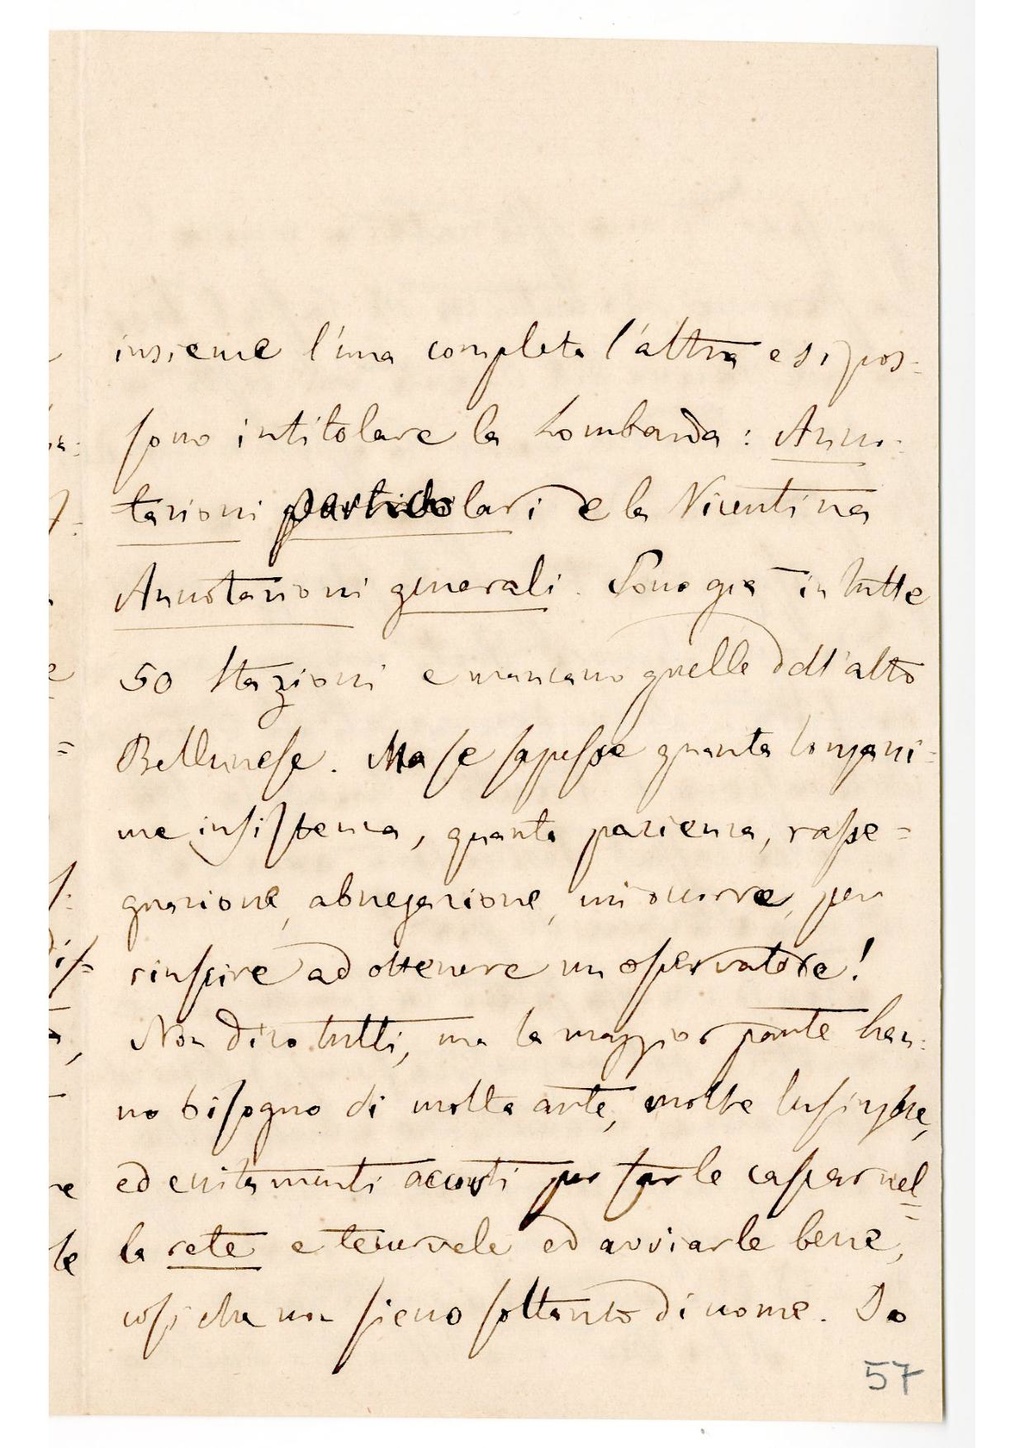 insieme l'una completa l'altra e si pos=
sono intitolare la Lombarda: Anno-
tazioni particolari e la Vicentina
Annotazioni generali. Sono già in tutte
50 Stazioni e mancano quelle dell'alto
Bellunese. Ma se sapesse quanta longani=
me insistenza, quanta pazienza, rasse=
gnazione, abnegazione, mi occorre, per
riuscire ad ottenere un osservatore!
Non dico tutti, ma la maggior parte han=
no bisogno di molta arte, molte lusinghe,
ed eccitamenti accorti per farle cascar nel=
la rete e tenervele ed avviarle bene,
così che non sieno soltanto di nome. Do
57